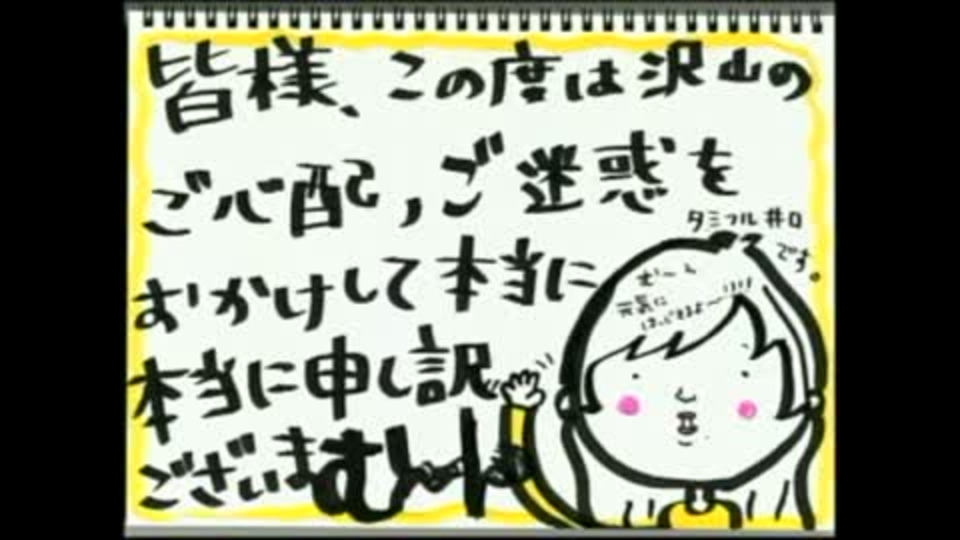 皆様、この度は沢山の
ご心配，ご迷惑を
おかけして本当に
本当に申し訳
ございまむーん
タミフル井口
です。
むーん
元気に